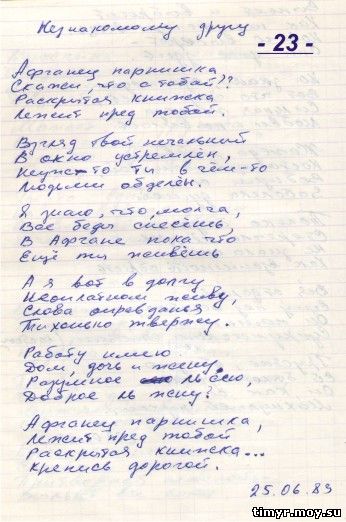 Незнакомому другу
- 23 -
Афганец парнишка
Скажи, что с тобой??
Раскрытая книжска
Лежит пред тобой.
Взгляд твой печальный
В окно устремлён,
Неужто ты в чём-то
Людьми обделён.
Я знаю, что, молча,
Все беды снесёшь,
В Афгане пока что
Ещё ты живёшь
А я вот в долгу
Неоплатном живу,
Слова оправданья
Тихонько твержу.
Работу имею
Дом, дочь и жену,
Разумное ль сею,
Доброе ль жну?
Афганец парнишка,
Лежит пред тобой
Раскрытая книжска...
Крепись дорогой.
25.06.89
timyr.moy.su